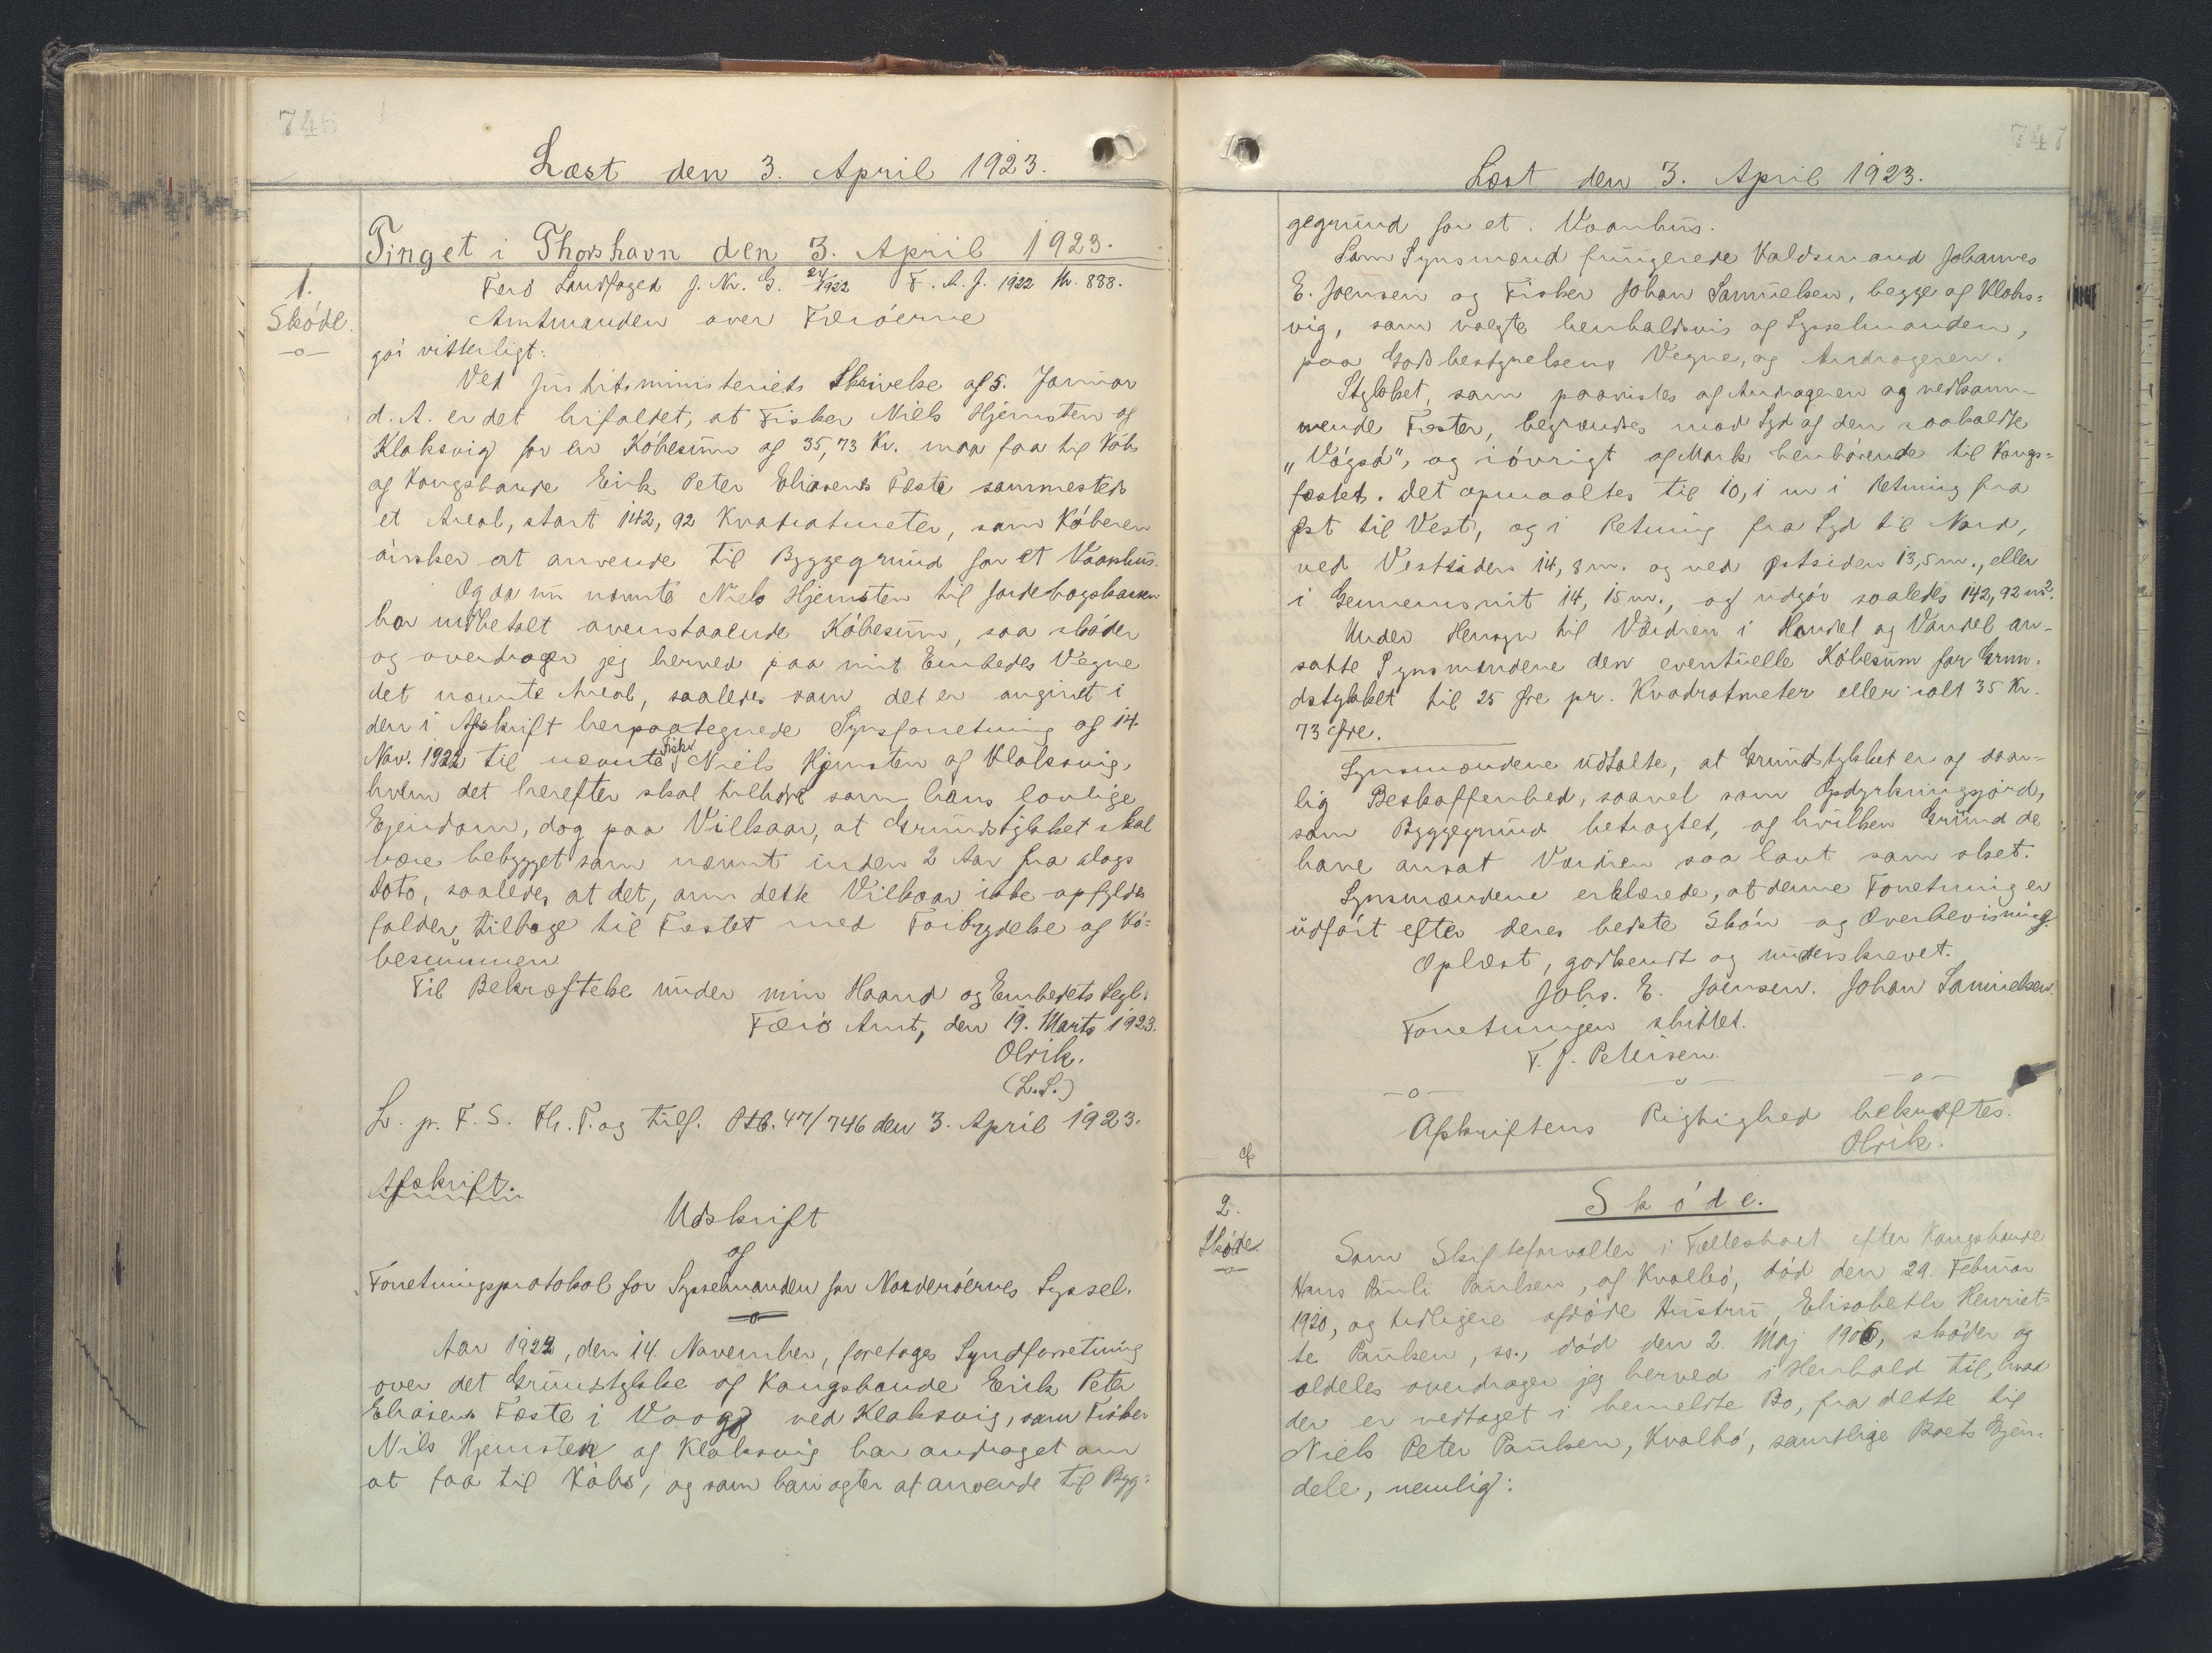 746
Læst den 3. April 1923.
Tinget i Thorshavn den 3. April 1923.
1.
Skóde.
Færö Landfoged J. Nr. G. 24/1922 F. A. J. 1922 Nr. 888.
Amtmanden over Færóerne
gör vitterligt:
Ved Justitsministeriets Skrivelse af 5. Januar
d. A. er det bifaldet, at Fisker Niels Hjemsten af
Klaksvig for en Kóbesum af 35,73 Kr. maa faa til Kóbs
af Kongsbonde Erik Peter Eliasens Fæste sammesteds
et Areal, stort 142,92 Kvadratmeter, som Kóberen
ónsker at anvende til Byggegrund for et Vaanhus.
Og da nu nævnte Niels Hjemsten til Jordebogskassen
har indbetalt ovenstaaende Kóbesum, saa skóder
og overdrager jeg herved paa mit Embedes Vegne
det nævnte Areal, saaledes som det er angivet i
den i Afskrift herpaategnede Synsforretning af 14.
Nov. 1922 til nævnte Fisker Niels Hjemsten af Klaksvig,
hvem det herefter skal tilhóre som hans lovlige
Ejendom, dog paa Vilkaar, at Grundstykket skal
være bebygget som nævnt inden 2 Aar fra dags
Dato, saaledes at det, om dette Vilkaar ikke opfyldes
falder tilbage til Fæstet med Fortrydelse af Kó-
besummen.
Til Bekræftelse under min Haand og Embedets Segl.
Færö Amt, den 19. Marts 1923.
Olrik.
(L.S.)
L. p. F. S. Th. T. og tilf. Otb. 47/746 den 3. April 1923.
Afskrift.
Udskrift
af
Forretningsprotokol for Sysselmanden for Norderóernes Syssel.
Aar 1922, den 14. November, foretages Synsforretning
over det Grundstykke af Kongsbonde Erik Peter
Eliasens Fæste i Vaag ved Klaksvig, som Fisker
Nils Hjemsten af Klaksvig har andraget om
at faa til Kóbs, og som han agter at anvende til Byg=
747
Læst den 3. April 1923.
gegrund for et Vaanhus.
Som Synsmænd fungerede Valdsmand Johannes
E. Joensen og Fisker Johan Samuelsen, begge af Klaks=
vig, som valgte henholdsvis af Sysselmanden,
paa Godsbestyrelsens Vegne, og Andrageren.
Stykket, som paavistes af Andrageren og vedkom-
mende Fæster, begrændses mod Syd af den saakaldte
"Vágsá", og ióvrigt af Mark henhórende til Kongs=
fæstet. Det opmaaltes til 10,1 m i Retning fra
Øst til Vest, og i Retning fra Syd til Nord,
ved Vestsiden 14,8 m. og ved Østsiden 13,5 m., eller
i Gennemsnit 14,15 m., og udgór saaledes 142,92 m².
Under Hensyn til Værdien i Handel og Vandel an-
satte Synsmændene den eventuelle Kóbesum for Grun-
dstykket til 25 Øre pr. Kvadratmeter eller ialt 35 Kr.
73 Øre.
Synsmændene udtalte, at Grundstykket er af daar-
lig Beskaffenhed, saavel som Opdyrkningsjord,
som Byggegrund betragtet, af hvilken Grund de
have ansat Værdien saa lavt som sket.
Synsmændene erklærede, at denne Forretning er
udfórt efter deres bedste Skón og Overbevisning.
Oplæst, godkendt og underskrevet.
Johs. E. Joensen. Johan Samuelsen.
Forretningen sluttet.
F. J. Petersen.
Afskriftens Rigtighed bekræftes.
Olrik.
2.
Skóde
Skóde.
Som Skifteforvalter i Fællesboet efter Kongsbonde
Hans Pauli Paulsen, af Kvalbó, dód den 29. Februar
1920, og tidligere afdóde Hustru, Elisabeth Henriet-
te Paulsen, ss., dód den 2. Maj 1906, skóder og
aldeles overdrager jeg herved i Henhold til, hvad
der er vedtaget i bemeldte Bo, fra dette til
Niels Peter Paulsen, Kvalbó, samtlige Boets Ejen=
dele, nemlig: